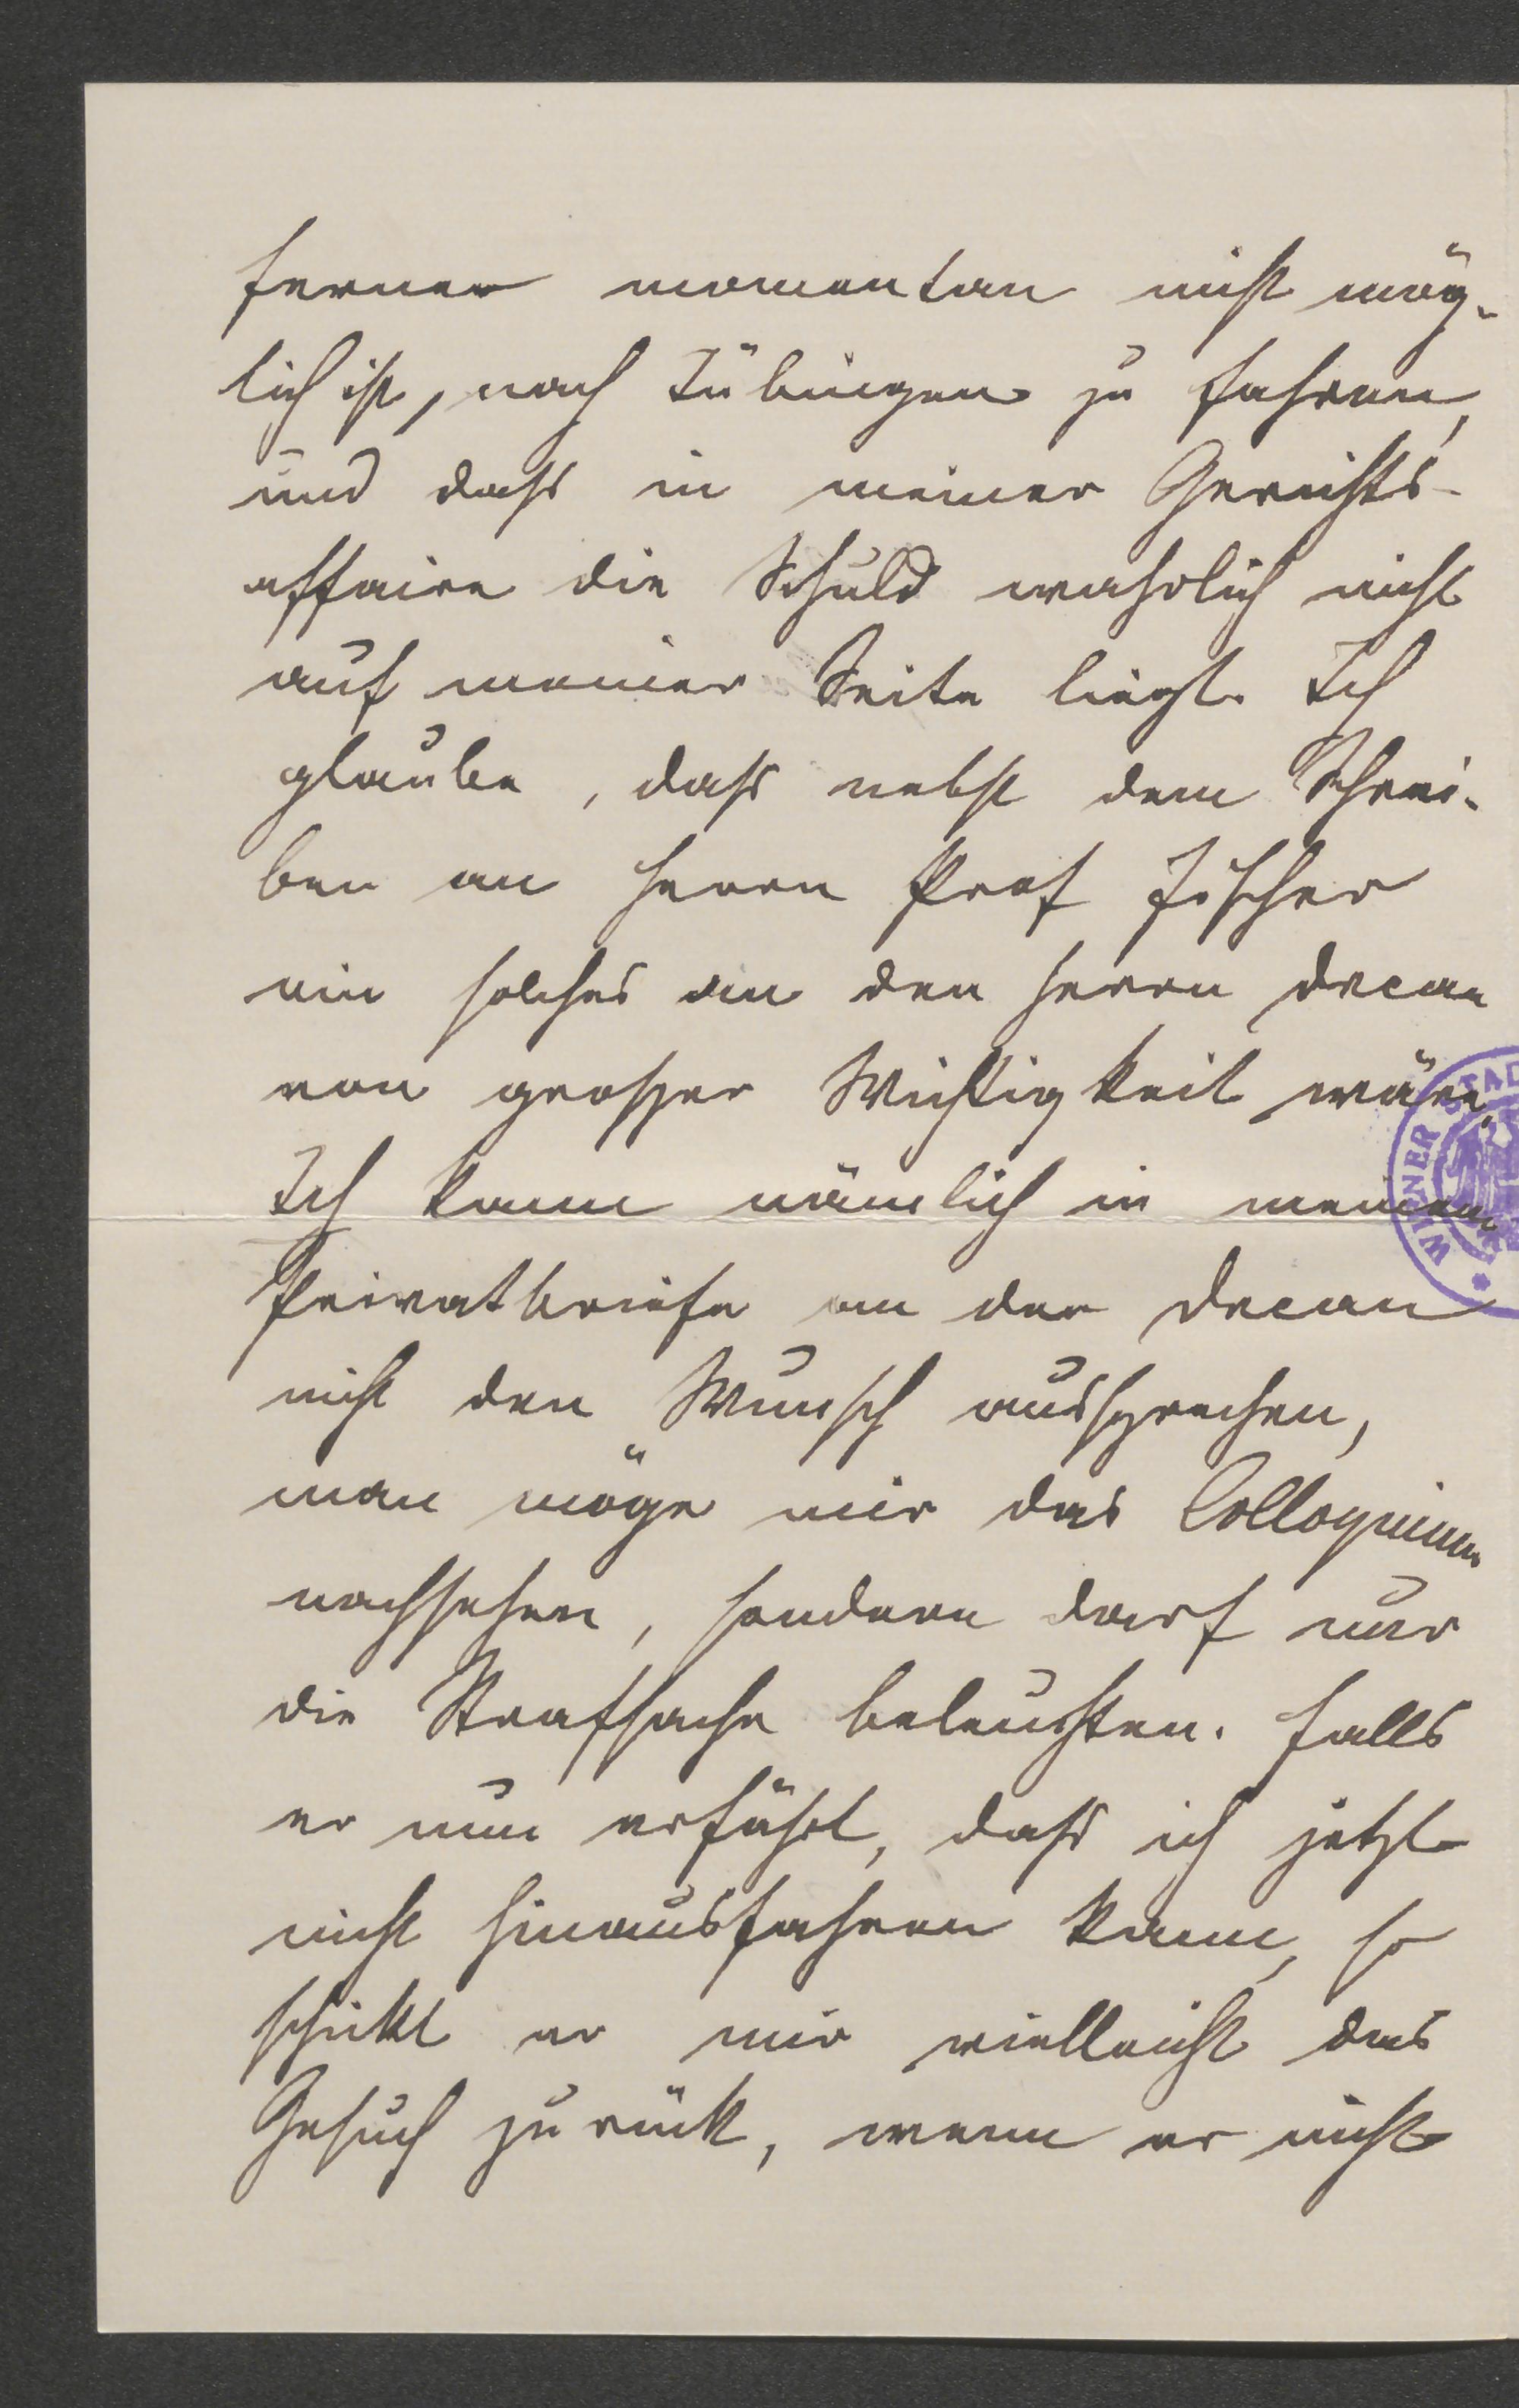 ferner momentan nicht mög-
lich ist, nach Tübingen zu fahren,
und dass in meiner Gerichts-
affaire die Schuld wahrlich nicht
auf meiner Seite liegt. Ich
glaube, dass nebst dem Schrei-
ben an Herrn Prof Fischer
ein solches an den Herrn Decan
von grosser Wichtigkeit wäre.
Ich kann nämlich in meinem
Privatbriefe an den Decan
nicht den Wunsch aussprechen,
man möge mir das Colloquium
nachsehen, sondern darf nur
die Strafsache beleuchten. Falls
er nun erfährt, dass ich jetzt
nicht hinausfahren kann, so
schickt er mir vielleicht das
Gesuch zurück, wenn er nicht
WIENER STAD